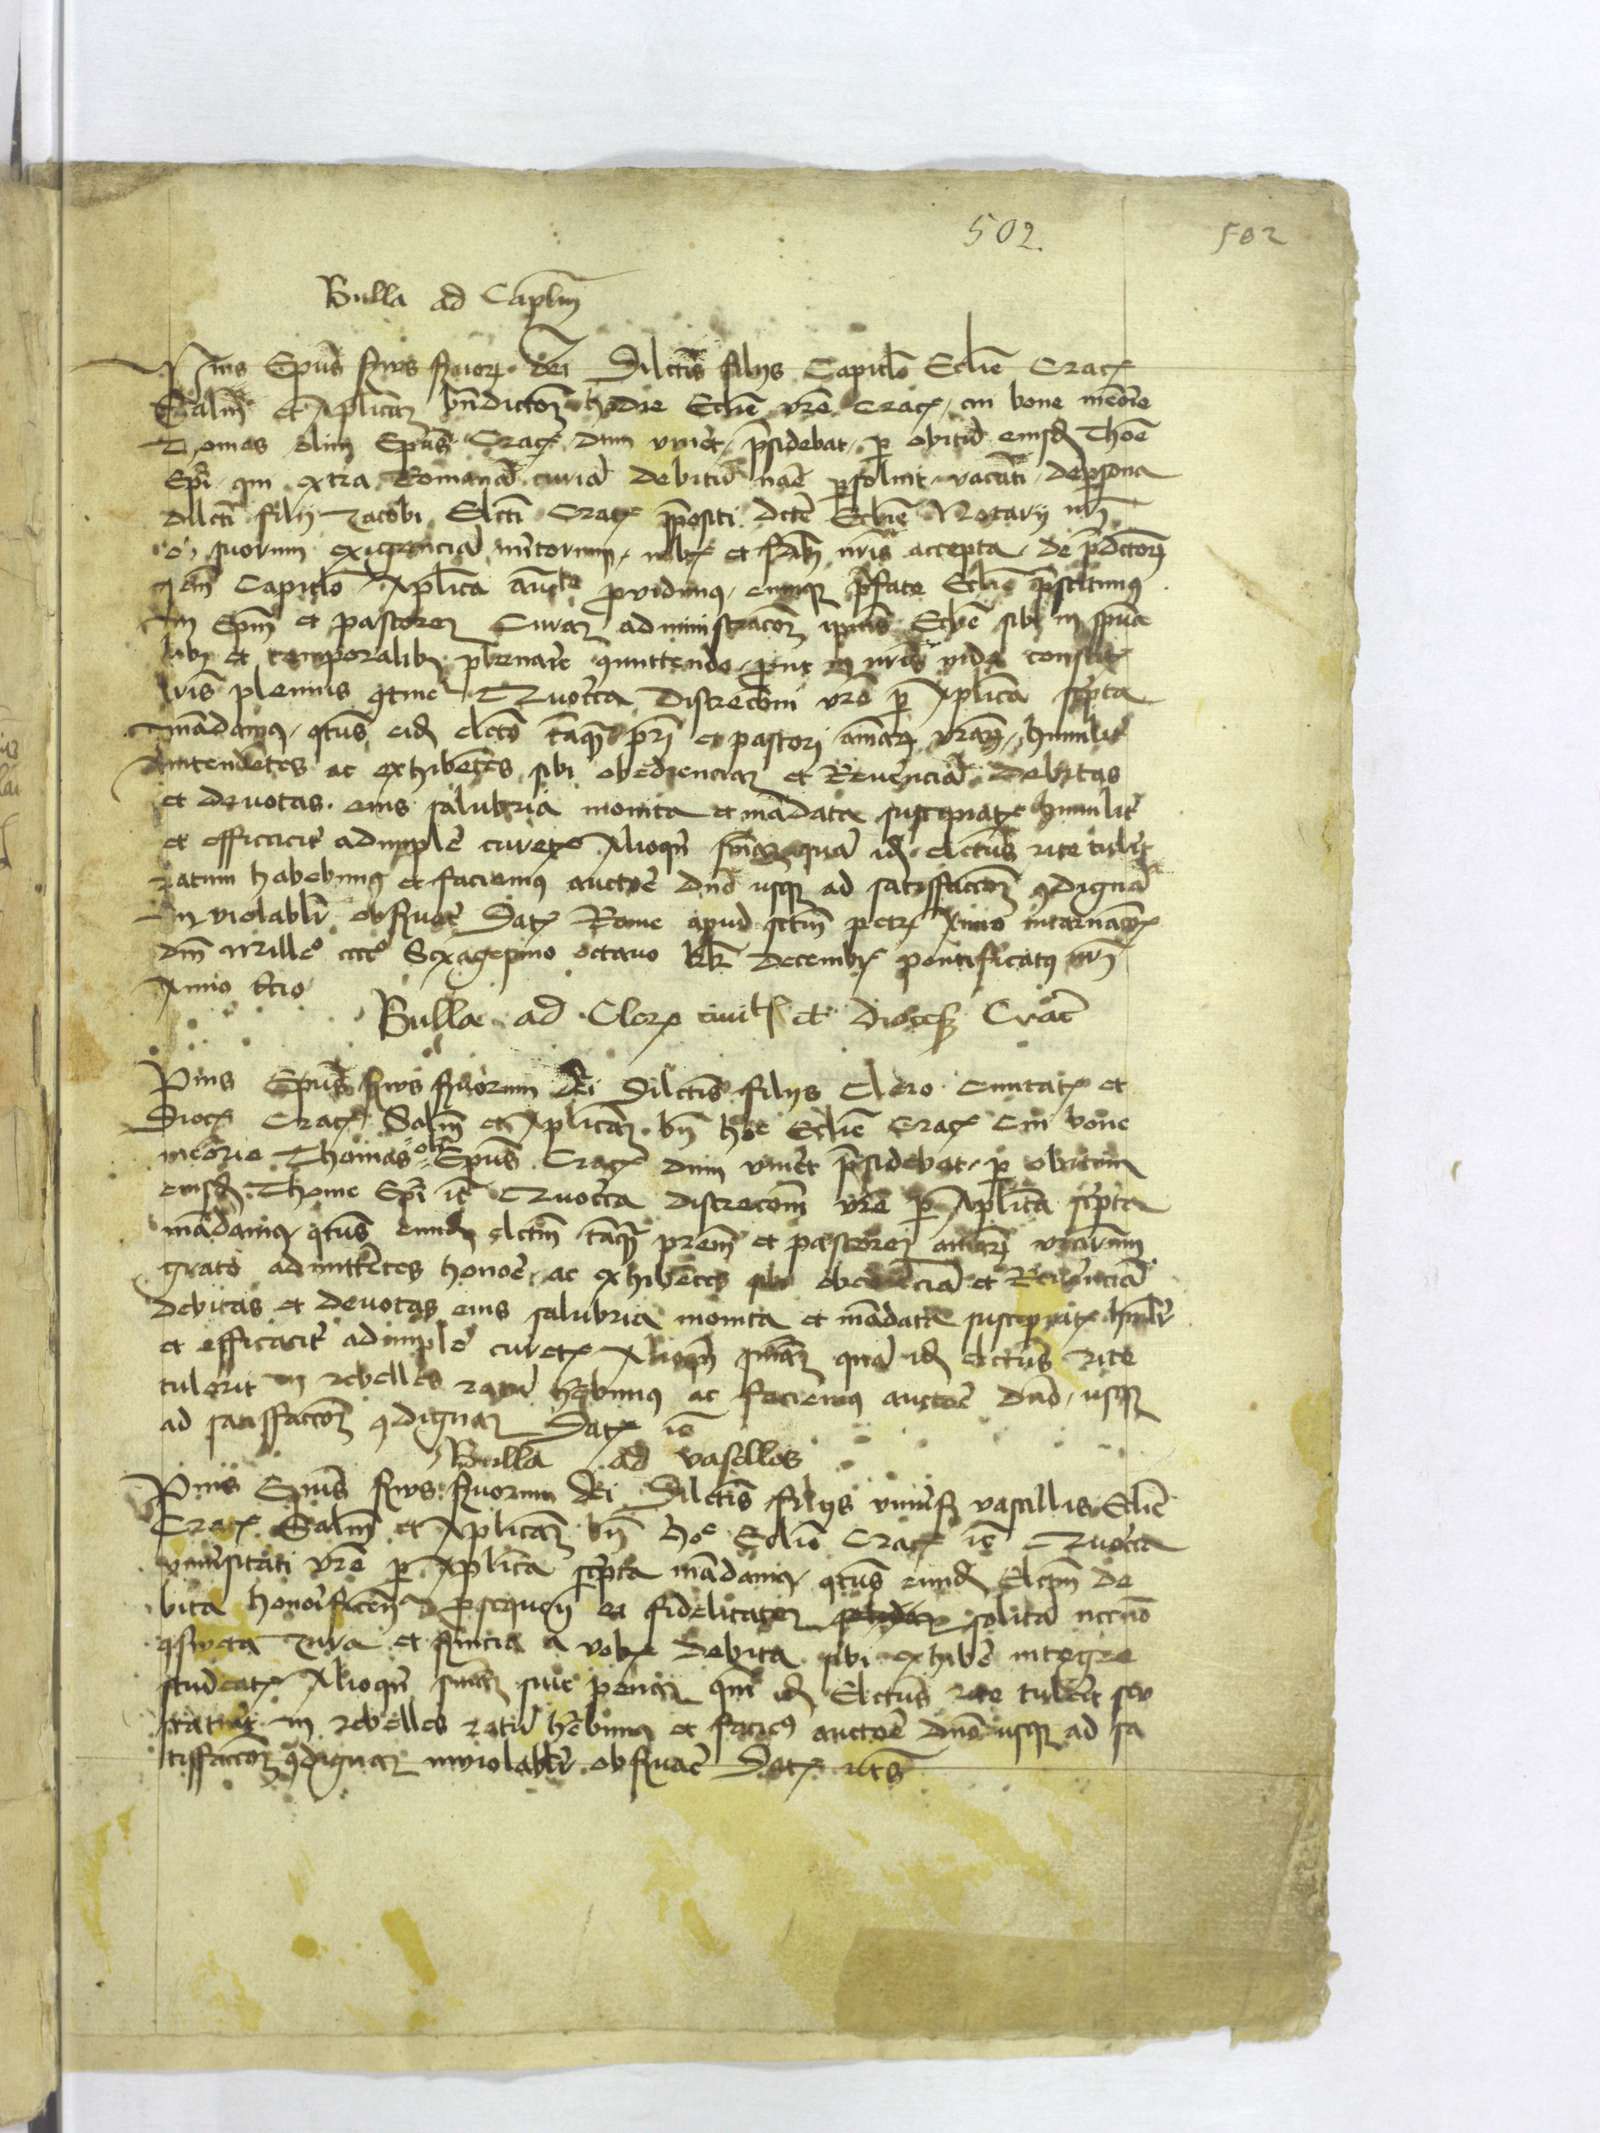 502.
502
Bulla ad Caplm
Pius Epus servus servorum dei Dilctis filiis Capitlo Eclie Crac
Salm et Aplicam bndictom hodie Eclie vre Crac cui bone memorie
Thomas olim Epus Crac dum viveret presidebat per obitum eiusd Thome
Epi qui extra Romana curia debitu nature persolvit vacanti de persona
dilcti filii Jacobi Elcti Crac prepositi dcte Eclie Notarii nri
ob suorum exigencia meritorum nobis et fratribus nris accepta de
Capitlo Aplica aucte providimus eumque prefate Eclie prefecimus
in Epum et pastorem Curam administracom ipius Eclie sibi in spua
libus et temporalibus plenarie committendo prout in nris inde confect
lris plenius continetur Quocirca discrecioni vre per Aplica scripta
mandamus qtus eid elcto tanquam pri et pastori animarum vrarum humilit
intendentes ac exhibentes sibi obedienciam et Reverencia debitas
et devotas eius salubria monita et mandata suscipiatis humilit
et efficacit adimplere curetis Alioquin snia quam id elctus rite tulerit
ratum habebimus et faciemus auctore dno usque ad satisfaccom condigna
inviolabilr observari Dat Rome apud sctm petr Anno incarnacois
dni Mille cccc Sexagesimo octavo kl decembr pontificatus nri
Anno tercio
Bulla ad Cler civitatis et dioces Crac
Pius Epus servus servorum dei Dilctis filiis Clero Civitatis et
Dioc Crac Salm et Aplicam bn hodie Eclie Crac Cui bone
memorie Thomas olim Epus Crac dum viveret presidebat per obitum
eiusd Thome Epi etc Quocirca discrecioni vre per Aplica scripta
mandamus qtus eund elctm tanquam prem et pastorem animarum vrarum
grato admittentes honore ac exhibentes sibi obediencia et Reverencia
debitas et devotas eius salubria monita et mandata suscipiatis humilr
et efficacit adimplere curetis Alioquin sniam quam id elctus rite
tulerit in rebelles ratum habebimus ac faciemus auctore dno usque
ad satisfaccom condignam Dat etc
Bulla ad vasallos
Pius Epus servus servorum dei Dilctis filiis universis vasallis Eclie
Crac Salm et Aplicam bn hodie Eclie Crac etc Quocirca
universitati vre per Aplica scripta mandamus qtus eund Elctm de
bita honorificencia prosequentes et fidelitatem solita necno
consueta Jura et servicia a vobis debita sibi exhibere integre
studeatis Alioquin sniam sive penam quam id Elctus rite tulerit seu
statuerit in rebelles ratum habebimus et faciemus auctore dno usque ad sa
tisfaccom condignam inviolabilr observari Dat ut s